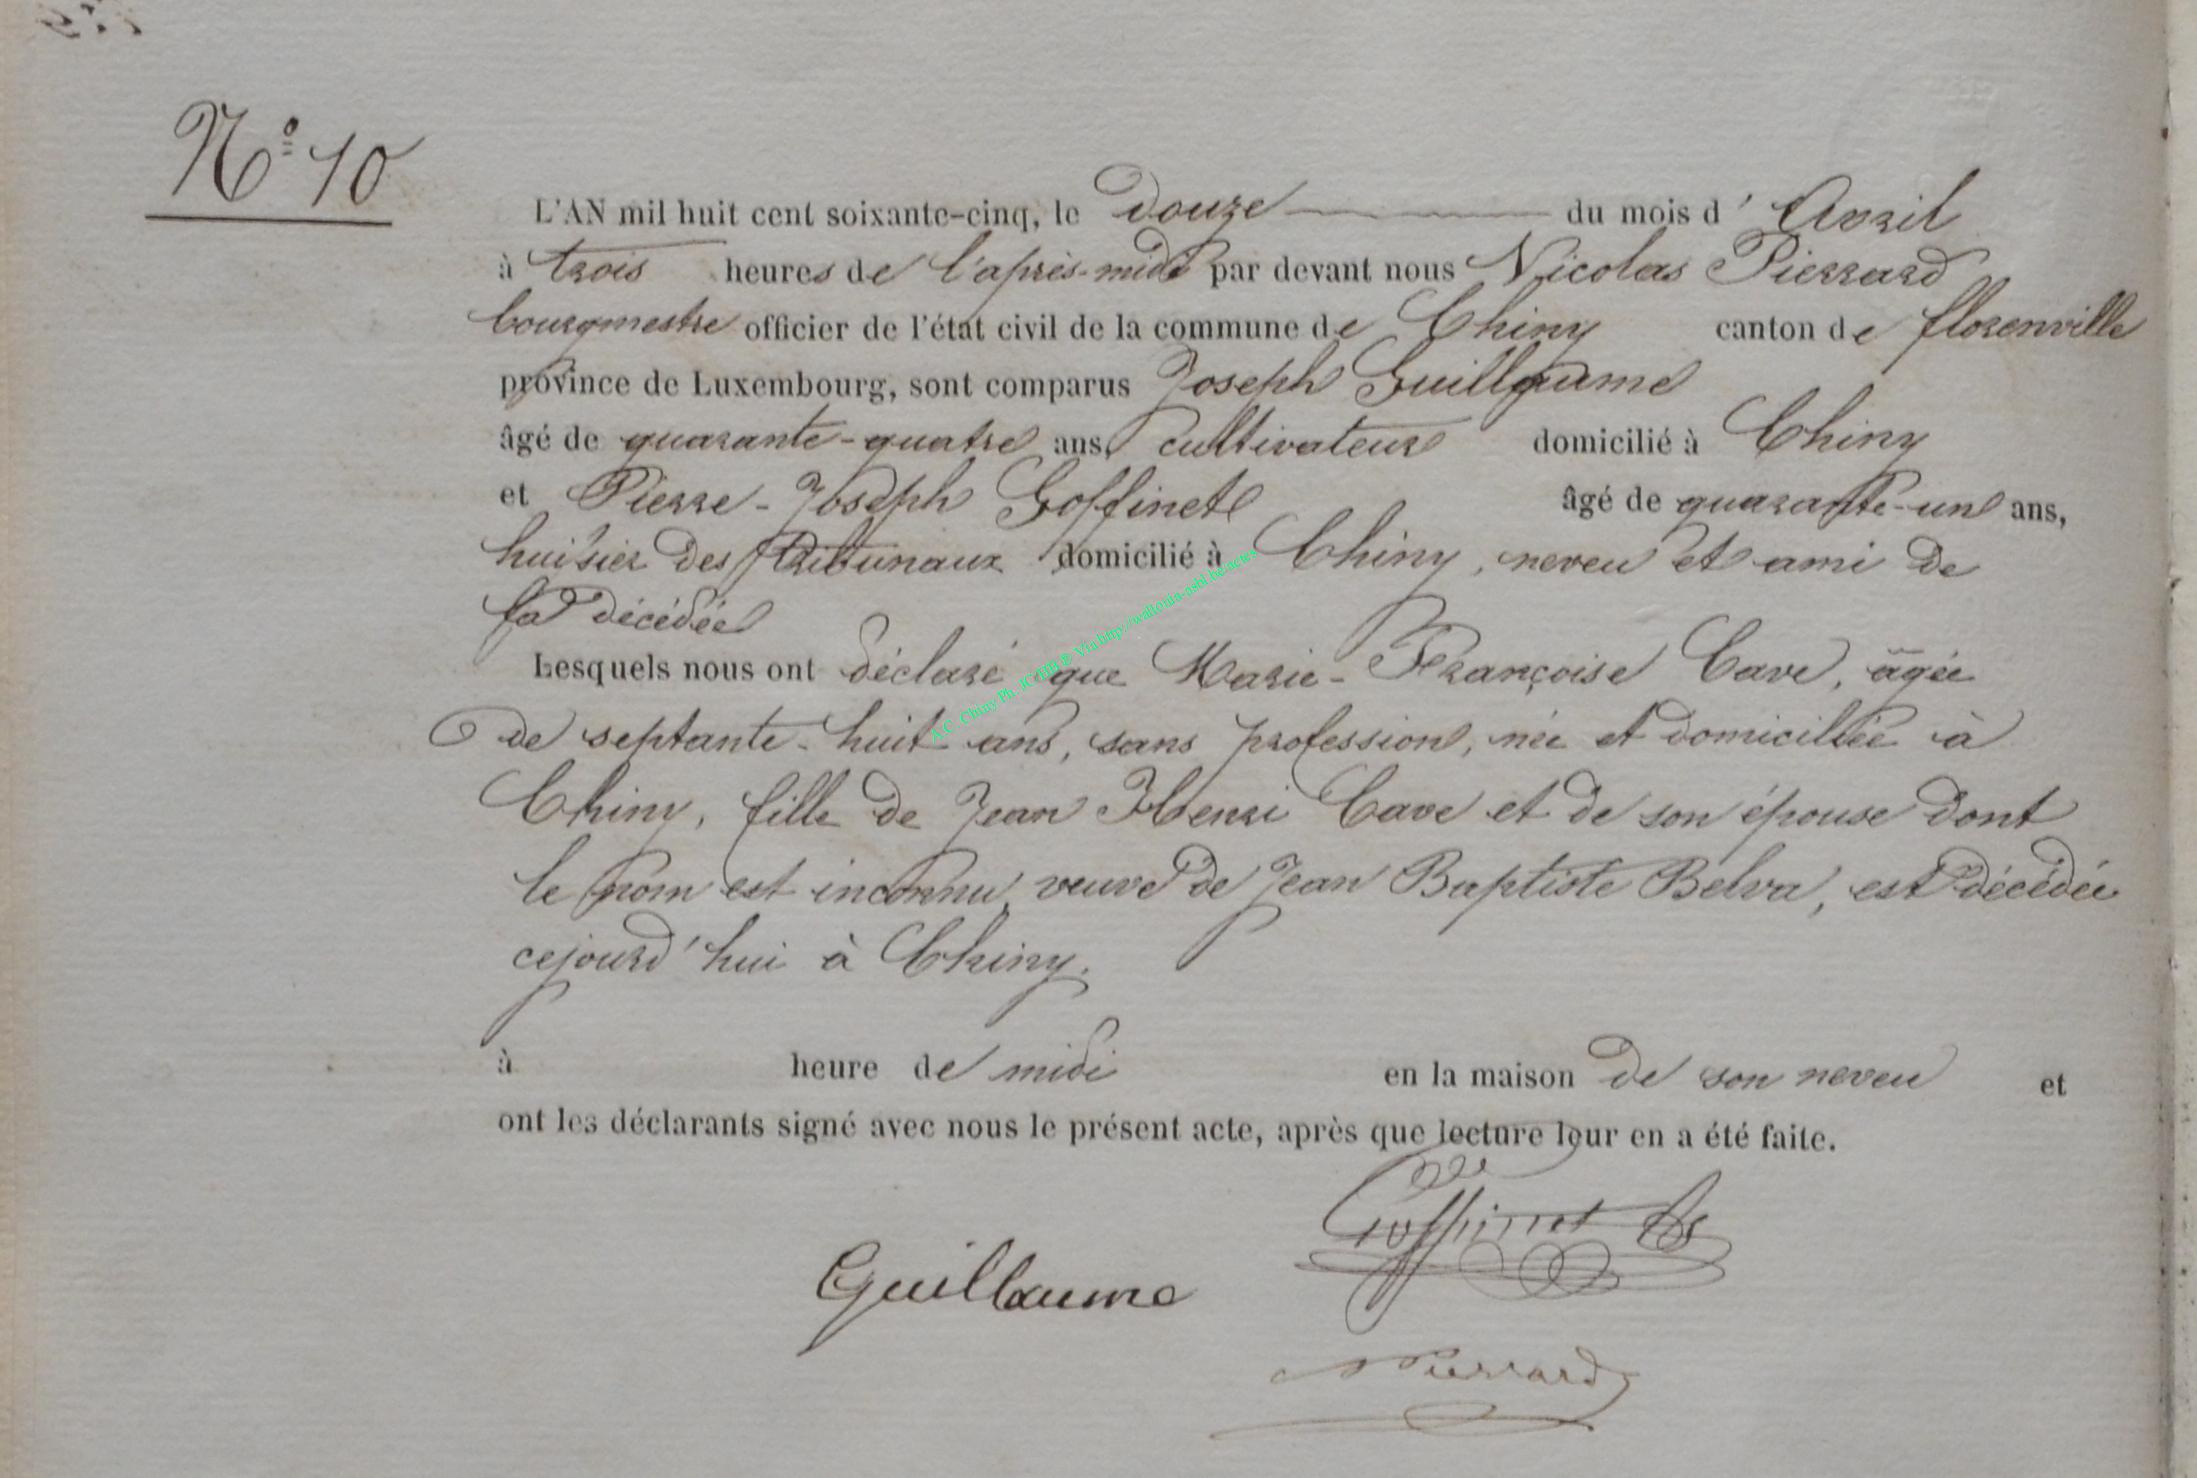 N° 10
L'AN mil huit cent soixante-cinq, le douze du mois d'Avril
à trois heures de l'après-midi par devant nous Nicolas Pierrard
bourgmestre officier de l'état civil de la commune de Chiny canton de florenville
province de Luxembourg, sont comparus Joseph Guillaume
âgé de quarante-quatre ans, cultivateur domicilié à Chiny
et Pierre-Joseph Goffinet âgé de quarante-un ans,
huissier des tribunaux domicilié à Chiny, neveu et ami de
la décédée
Lesquels nous ont déclaré que Marie-Françoise Cave, âgée
de septante-huit ans, sans profession, née et domiciliée à
Chiny, fille de Jean Henri Cave et de son épouse dont
le nom est inconnu, veuve de Jean Baptiste Belva, est décédée
cejourd'hui à Chiny.
à heure de midi en la maison de son neveu et
ont les déclarants signé avec nous le présent acte, après que lecture leur en a été faite.
Goffinet
Guillaume
Pierrard
A.C. Chiny Ph. via http://wallonia-asbl.be/actes